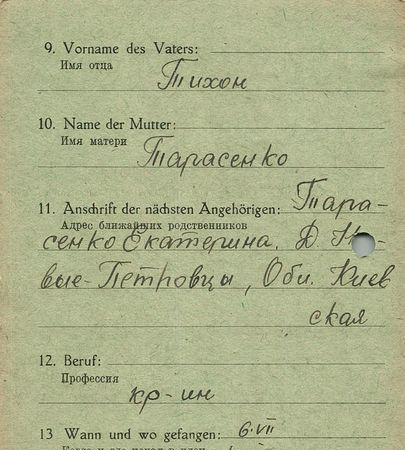 9. Vorname des Vaters:
Имя отца
Тихон
10. Name der Mutter:
Имя матери
Тарасенко
11. Anschrift der nächsten Angehörigen: Тара-
Адрес ближайших родственников
сенко Екатерина, Д. Но-
вые-Петровцы, Обл. Киев
ская
12. Beruf:
Профессия
кр-ин
13 Wann und wo gefangen: 6.VII